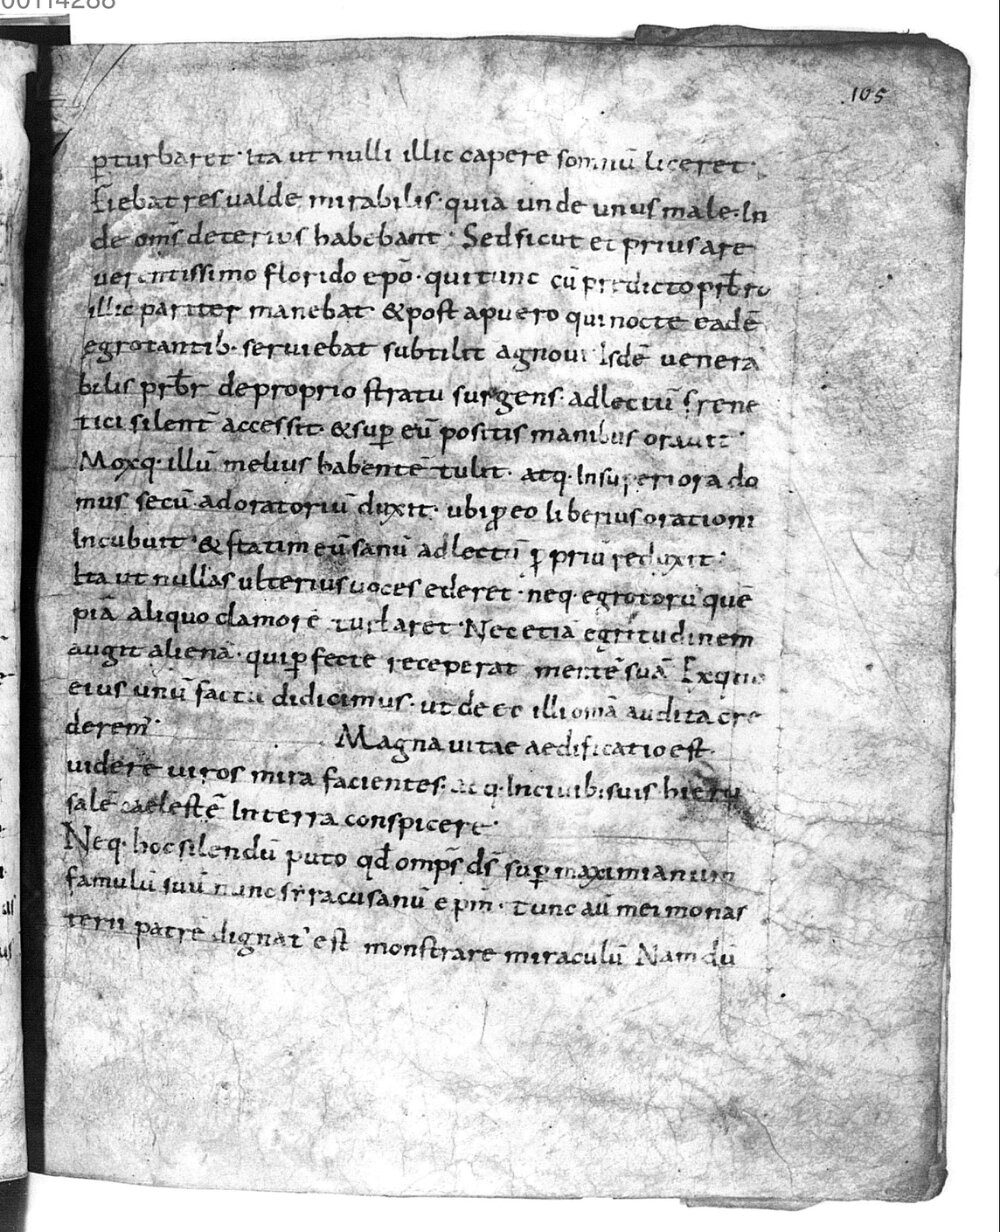 00114288
105
ꝑturbaret· Ita ut nulli illic capere somnū liceret·
Fiebat res valde mirabilis· quia unde unus male· In
de oms̄ deterius habebant· Sed sicut et prius a re
verentissimo florido epō· qui tunc cū predicto prb̄ro
illic pariter manebat & post a puero qui nocte eadē
egrotantib· seruiebat subtilit agnoui Isdē uenera
bilis prb̄r de proprio stratu surgens· ad lectū frene
tici silent̄ accessit· & suꝑ eū positis manibus orauit·
Moxq· illū melius habentē tulit· atq· In superiora do
mus secū ad oratoriū duxit· ubi ꝓ eo liberius orationi
Incubuit· & statim eū sanū ad lectū ꝓpriū reduxit·
Ita ut nullas ulterius uoces ederet· neq· egrotorū quē
piā aliquo clamore turbaret· Nec etiā egritudinem
augit alienā· qui ꝑfecte receperat mentē suā Ex quo
eius unū factū didicimus· ut de eo illi omā audita cre
derem̄·
Magna uitae aedificatio est·
uidere uiros mira facientes· atq· In ciuib· suis hieru
salē caelestē In terra conspicere·
Neq· hoc silendū puto qd̄ omps̄ ds̄ suꝑ maximianum
famulū suū nunc siracusanū epm̄· tunc aū mei monas
terii patrē dignat' est monstrare miraculū Nam dū